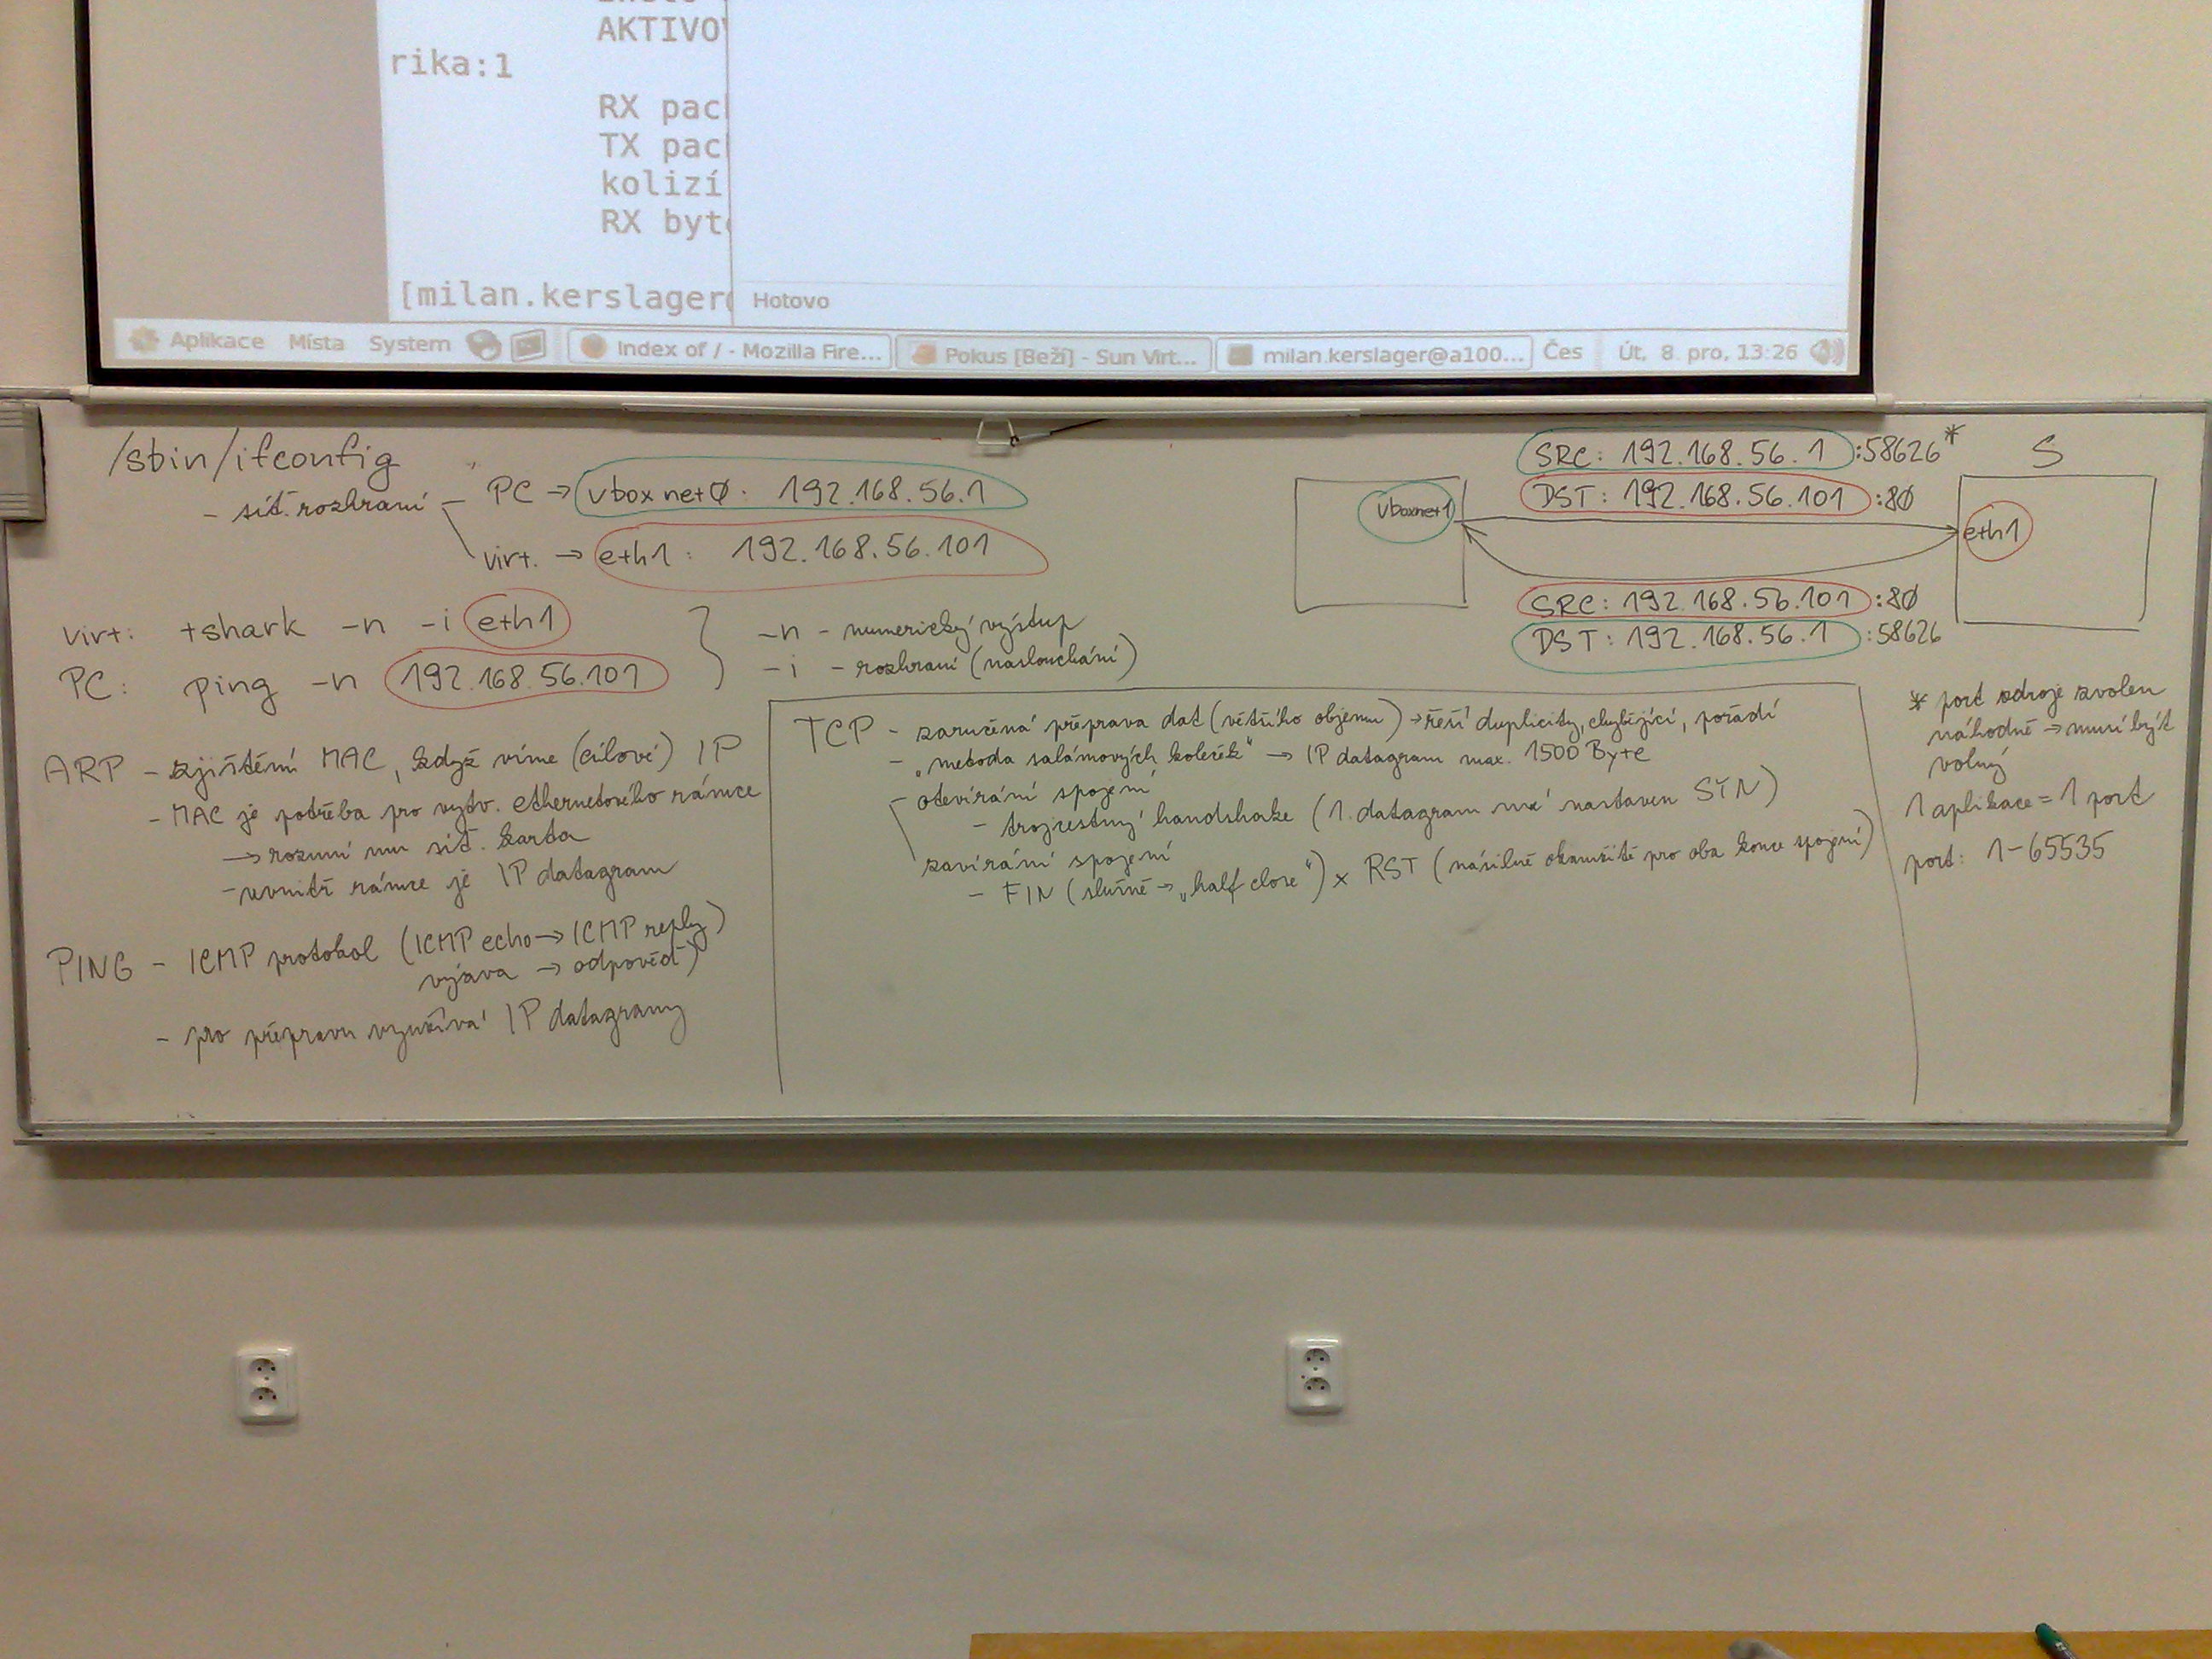 AKTIVO
rika:1
RX pac
TX pac
kolizí
RX byt
[milan.kerslager
Hotovo
Aplikace Místa System Index of / - Mozilla Fire... Pokus [Beží] - Sun Virt... milan.kerslager@a100... Čes Út, 8. pro, 13:26
/sbin/ifconfig
- síť. rozhraní - PC → vboxnet0: 192.168.56.1
virt. → eth1: 192.168.56.101
virt: tshark -n -i eth1
PC: ping -n 192.168.56.101
-n - numerický výstup
-i - rozhraní (naslouchání)
ARP - zjištění MAC, když víme (cílové) IP
- MAC je potřeba pro vytv. ethernetového rámce
→ rozumí mu síť. karta
- uvnitř rámce je IP datagram
PING - ICMP protokol (ICMP echo → ICMP reply)
výzva → odpověď)
- pro přepravu využívá IP datagramy
TCP - zaručená přeprava dat (většího objemu) → řeší duplicity, chybějící, pořadí
- „metoda salámových koleček" → IP datagram max. 1500 Byte
- otevírání spojení
- trojcestný handshake (1. datagram má nastaven SYN)
zavírání spojení
- FIN (slušné → „half close") x RST (násilně okamžitě pro oba konce spojení)
SRC: 192.168.56.1 :58626*
DST: 192.168.56.101 :80
S
vboxnet1
eth1
SRC: 192.168.56.101 :80
DST: 192.168.56.1 :58626
* port zdroje zvolen
náhodně → musí být
volný
1 aplikace = 1 port
port: 1-65535